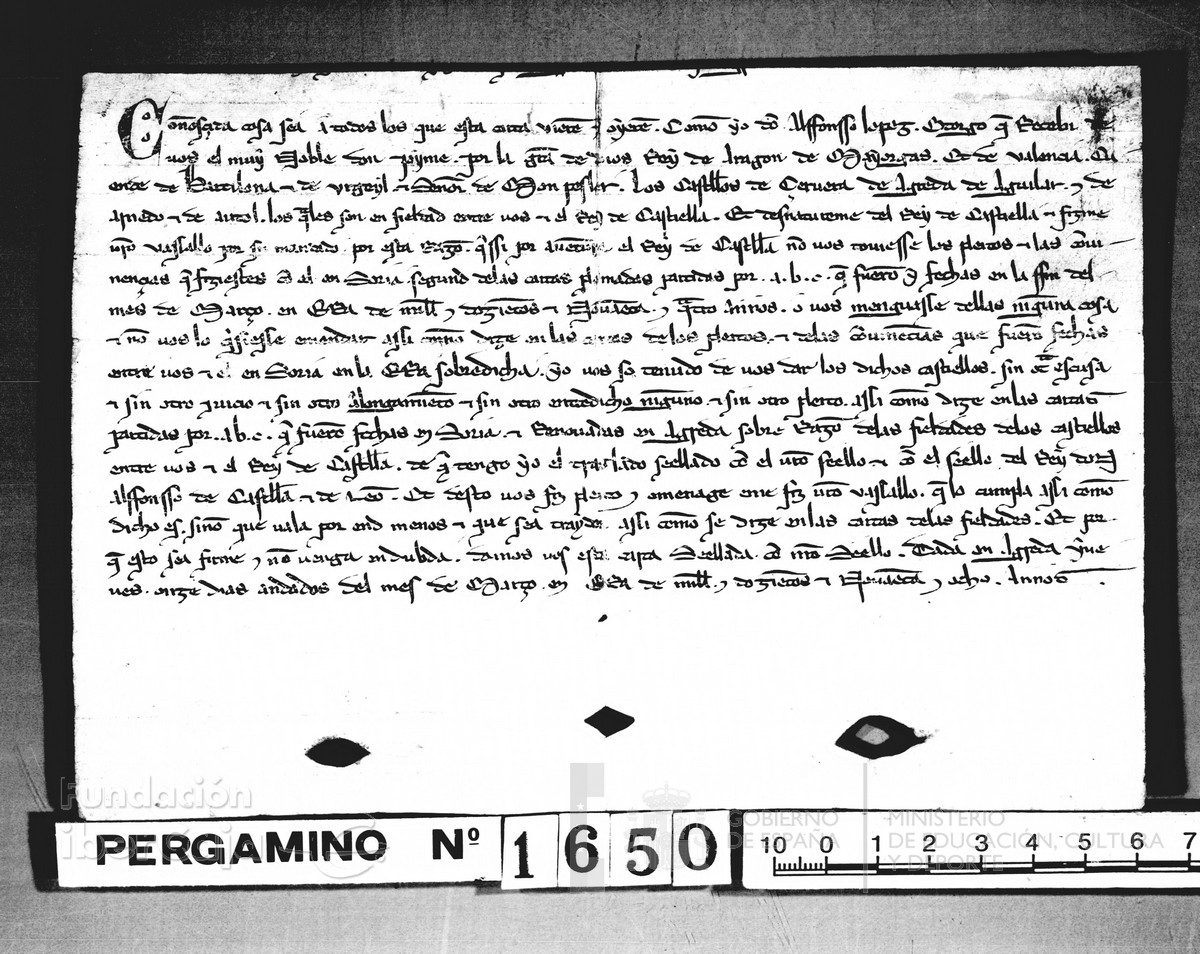 Conosçuda cosa sea a todos los que esta carta vierē ⁊ oyerē. Comō yo dō Alffonsso lopez. Otorgo q̄ Recebi de
uos el muy Noble don Jayme. por la gr̄a de dios Rey de Aragon de Mayorgas. Et de Valencia. Cu
ende de Barcilona ⁊ de Urgeyl ⁊ Senor de Mon pesler. Los Castiellos de Ceruera de Agreda de Aguilar. ⁊ de
Arnedo ⁊ de Autol. los q̄les son en fieldad entre uos ⁊ el Rey de Castiella. Et desnaturéme del Rey de Castiella ⁊ fizme
ur̄o vassallo por su mandado por esta Razō. q̄ssi por auētura el Rey de Castiella nō uos touiesse los pleitos ⁊ las cōui
nenças q̄ fiziestes cō el en Soria segund delas cartas plomadas partidas por .a.b.c. q̄ fuerō fechas en la ffin del
mes de Março. en ERA de mill ⁊ dozientos ⁊ Nouaēta. ⁊ q̄tro Annos. o uos menguasse dellas nīguna cosa
⁊ nō uos lo q̄siesse emendar assi commo dize en las cartas de los pleitos. ⁊ delas cōuinēcias que fuerō fechas
entre uos ⁊ el en Soria en la ERA sobredicha. Yo uos so tenudo de uos dar los dichos castiellos. sin ot̄ escusa
⁊ sin otro juicio ⁊ sin otro alongamiēto ⁊ sin otro entredicho nīguno ⁊ sin otro pleito. assi comō dize en las cartas
partidas por .a.b.c. q̄ fuerō fechas en Soria. ⁊ Renouadas en Agreda sobre Razō delas fieldades delos castiellos
entre uos ⁊ el Rey de Castiella. de q̄ tengo yo el traslado seellado cō el ur̄o seello ⁊ cō el seello del Rey don
Alffonsso de Castiella ⁊ de Leō. Et desto uos fiz pleito ⁊ omenage
dicho es. sinō que uala por end menos ⁊ que sea traydor assi comō se dize en las cartas delas fieldades. Et por
q̄ esto sea firme ⁊ nō uenga en dubda. damos uos esta carta Seellada cō nr̄o Seello. Dada en Agreda Yue
ues. onze dias andados del mes de Março en ERA de mill ⁊ dozientos ⁊ Nouaēta ⁊ ocho. Annos.
Fundación
GOBIERNO MINISTERIO
DE ESPAÑA DE EDUCACIÓN, CULTURA
Y DEPORTE
PERGAMINO Nº 1650
10 0 1 2 3 4 5 6 7